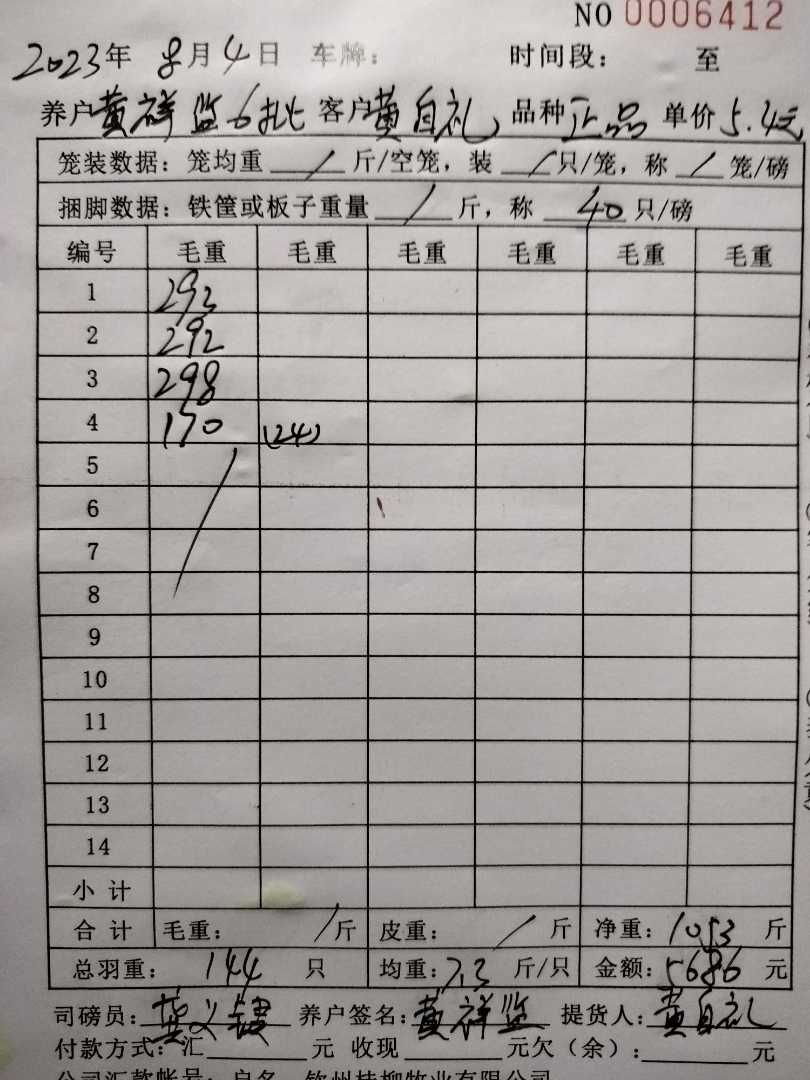 NO 0006412
2023年 8月 4日 车牌: 时间段: 至
养户黄祥监6批 客户黄自礼 品种正品 单价5.4元
笼装数据: 笼均重 / 斤/空笼, 装 / 只/笼, 称 / 笼/磅
捆脚数据: 铁筐或板子重量 / 斤, 称 40 只/磅
编号 毛重 毛重 毛重 毛重 毛重 毛重
1 293
2 292
3 298
4 170 (24)
5
6
7
8
9
10
11
12
13
14
小 计
合 计 毛重: / 斤 皮重: / 斤 净重: 1053 斤
总羽重: 144 只 均重: 7.3 斤/只 金额: 5686 元
司磅员: 养户签名: 黄祥监 提货人: 黄自礼
付款方式: 汇 元 收现 元欠(余): 元
公司汇款帐号: 户名 钦州桂柳牧业有限公司